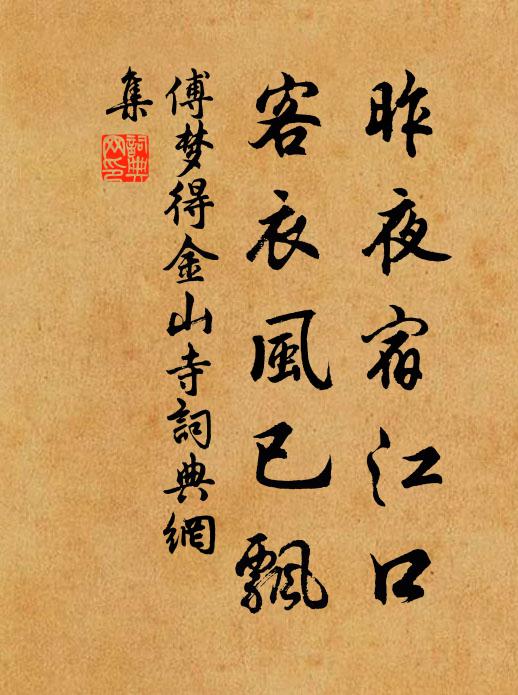 昨夜宿江口
客衣風已飄
傅梦得金山寺詞典網
集
詞典網印